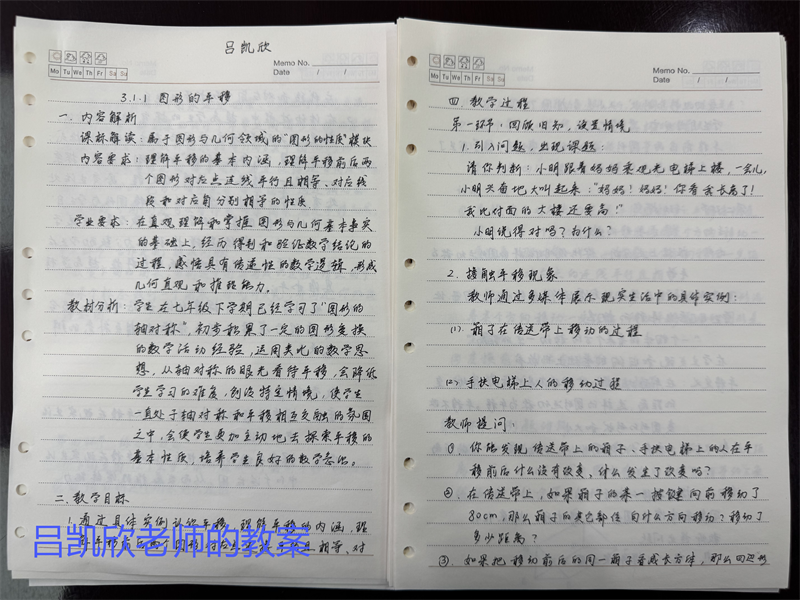 吕凯欣
Memo No.
Mo Tu We Th Fr Sa Su
Date / /
3.1.1 图形的平移
一. 内容解析
课标解读：属于图形与几何领域的“图形的性质”模块
内容要求：理解平移的基本内涵，理解平移前后两
个图形对应点连线平行且相等、对应线
段和对应角分别相等的性质
学业要求：在直观理解和掌握图形与几何基本事实
的基础上，经历得到和验证数学结论的
过程，感悟具有传递性的数学逻辑，形成
几何直观和推理能力。
教材分析：学生在七年级下学期已经学习了“图形的
轴对称”，初步积累了一定的图形变换
的数学活动经验，运用类比的数学思
想，从轴对称的眼光看待平移，会降低
学生学习的难度，创设特定情境，使学生
一直处于轴对称和平移相互交融的氛围
之中，会使学生更加主动地去探索平移的
基本性质，培养学生良好的数学意识。
二. 教学目标
1. 通过具体实例认识平移，理解平移的内涵，理
解平移前后两个图形对应点连线平行且相等、对
吕凯欣老师的教案
Memo No.
Mo Tu We Th Fr Sa Su
Date / /
四. 教学过程
第一环节：回顾旧知，设置情境
1. 引入问题，出现课题：
请你判断：小明跟着妈妈乘观光电梯上楼，一会儿，
小明兴奋地大叫起来：“妈妈！妈妈！你看我长高了！
我比对面的大楼还要高！”
小明说得对吗？为什么？
2. 接触平移现象
教师通过多媒体展示现实生活中的具体实例：
(1). 箱子在传送带上移动的过程
(2) 手扶电梯上人的移动过程
教师提问：
①. 你能发现传送带上的箱子、手扶电梯上的人在平
移前后什么没有改变，什么发生了改变吗？
②. 在传送带上，如果箱子的某一按键向前移动了
80cm，那么箱子的其它部位向什么方向移动？移动了
多少距离？
③. 如果把移动前后的同一箱子看成长方体，那么四边形